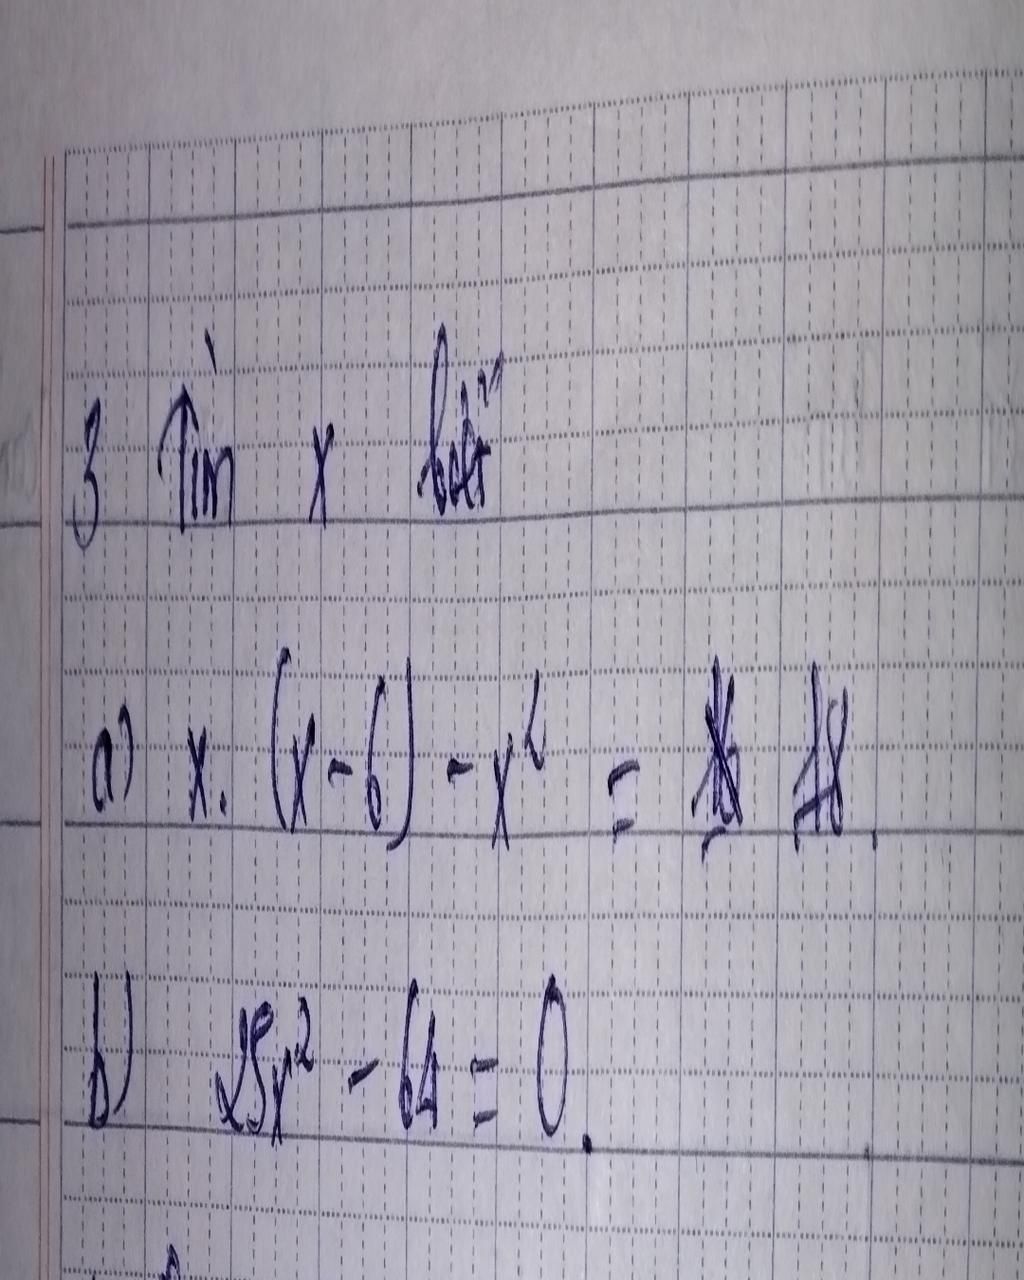 3 Tìm x biết
a) x. (x-6) - x² = 18.
b) 25x² - 64 = 0.